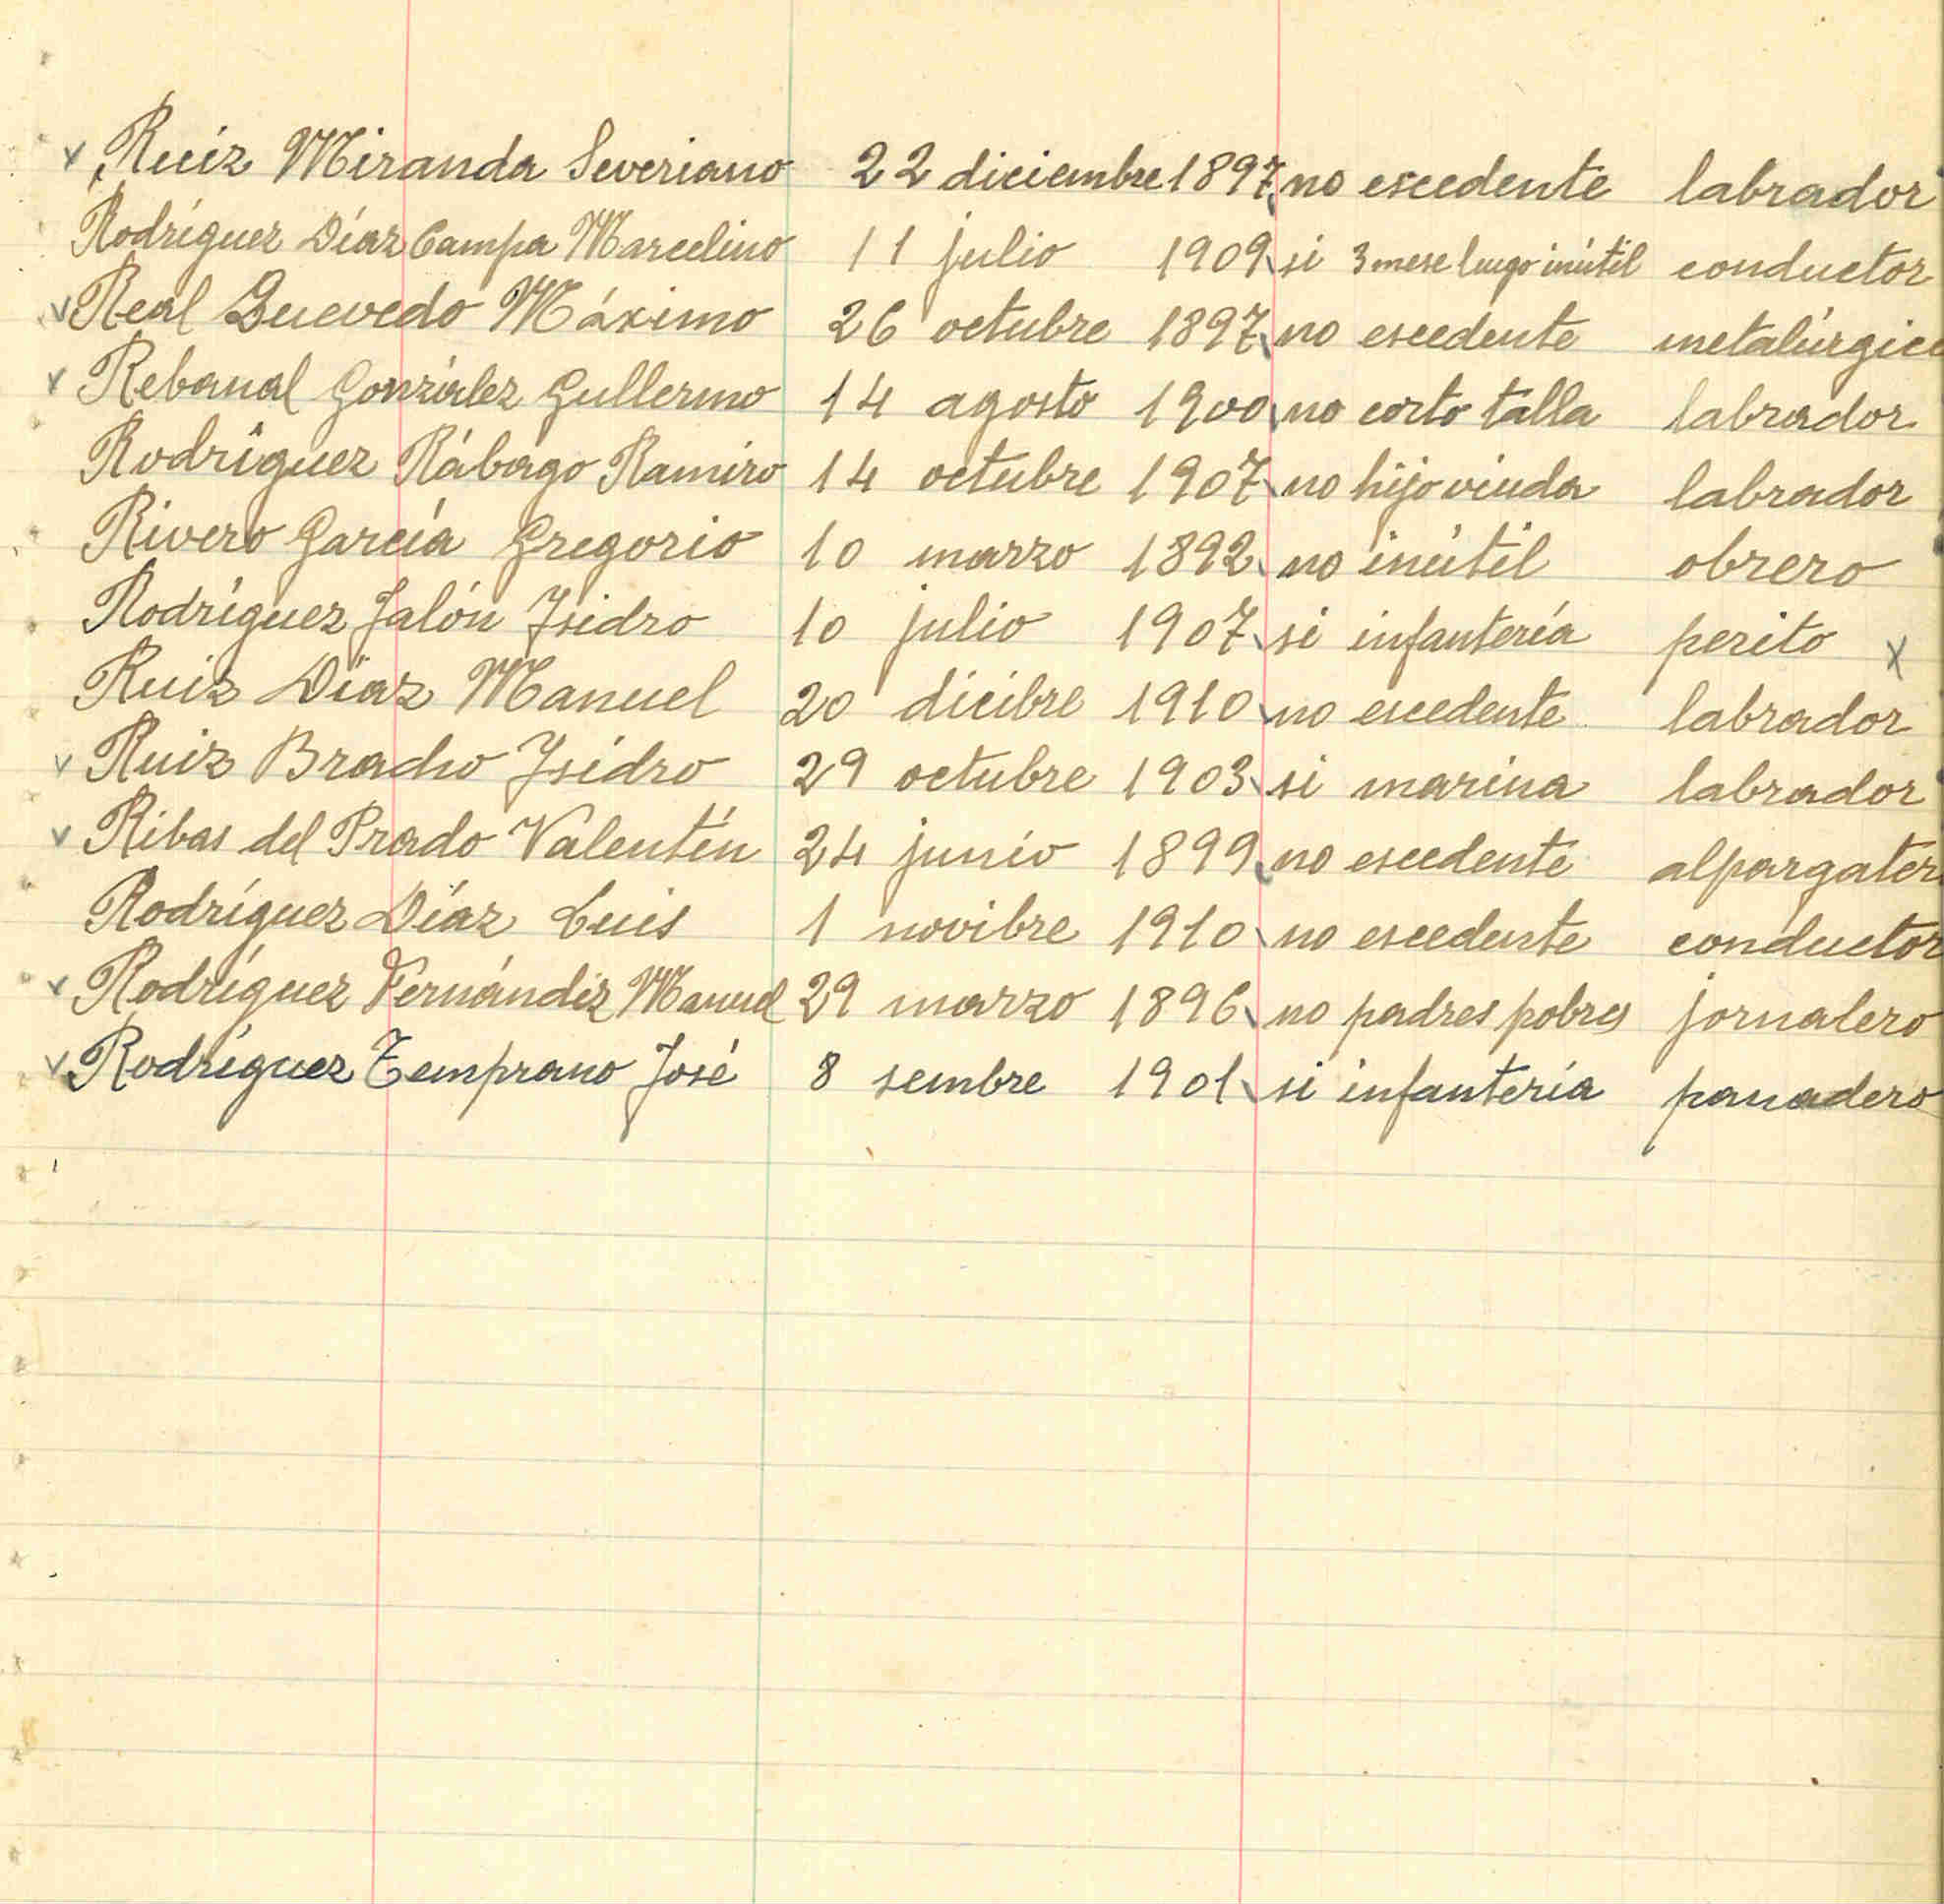 Ruiz Miranda Severiano 22 diciembre 1897 no escedente labrador
Rodríguez Díaz Campa Marcelino 11 julio 1909 si 3 mese luego inútil conductor
Real Quevedo Máximo 26 octubre 1897 no escedente metalúrgico
Rebanal González Gullermo 14 agosto 1900 no corto talla labrador
Rodríguez Rábago Ramiro 14 octubre 1907 no hijo viuda labrador
Rivero García Gregorio 10 marzo 1892 no inútil obrero
Rodríguez Jalón Isidro 10 julio 1907 si infantería perito x
Ruiz Díaz Manuel 20 dicibre 1910 no escedente labrador
Ruiz Bracho Isidro 29 octubre 1903 si marina labrador
Ribas del Prado Valentín 24 junio 1899 no escedente alpargater
Rodríguez Díaz Luis 1 novibre 1910 no escedente conductor
Rodríguez Fernández Manuel 29 marzo 1896 no padres pobres jornalero
Rodríguez Temprano José 8 sembre 1901 si infantería panadero